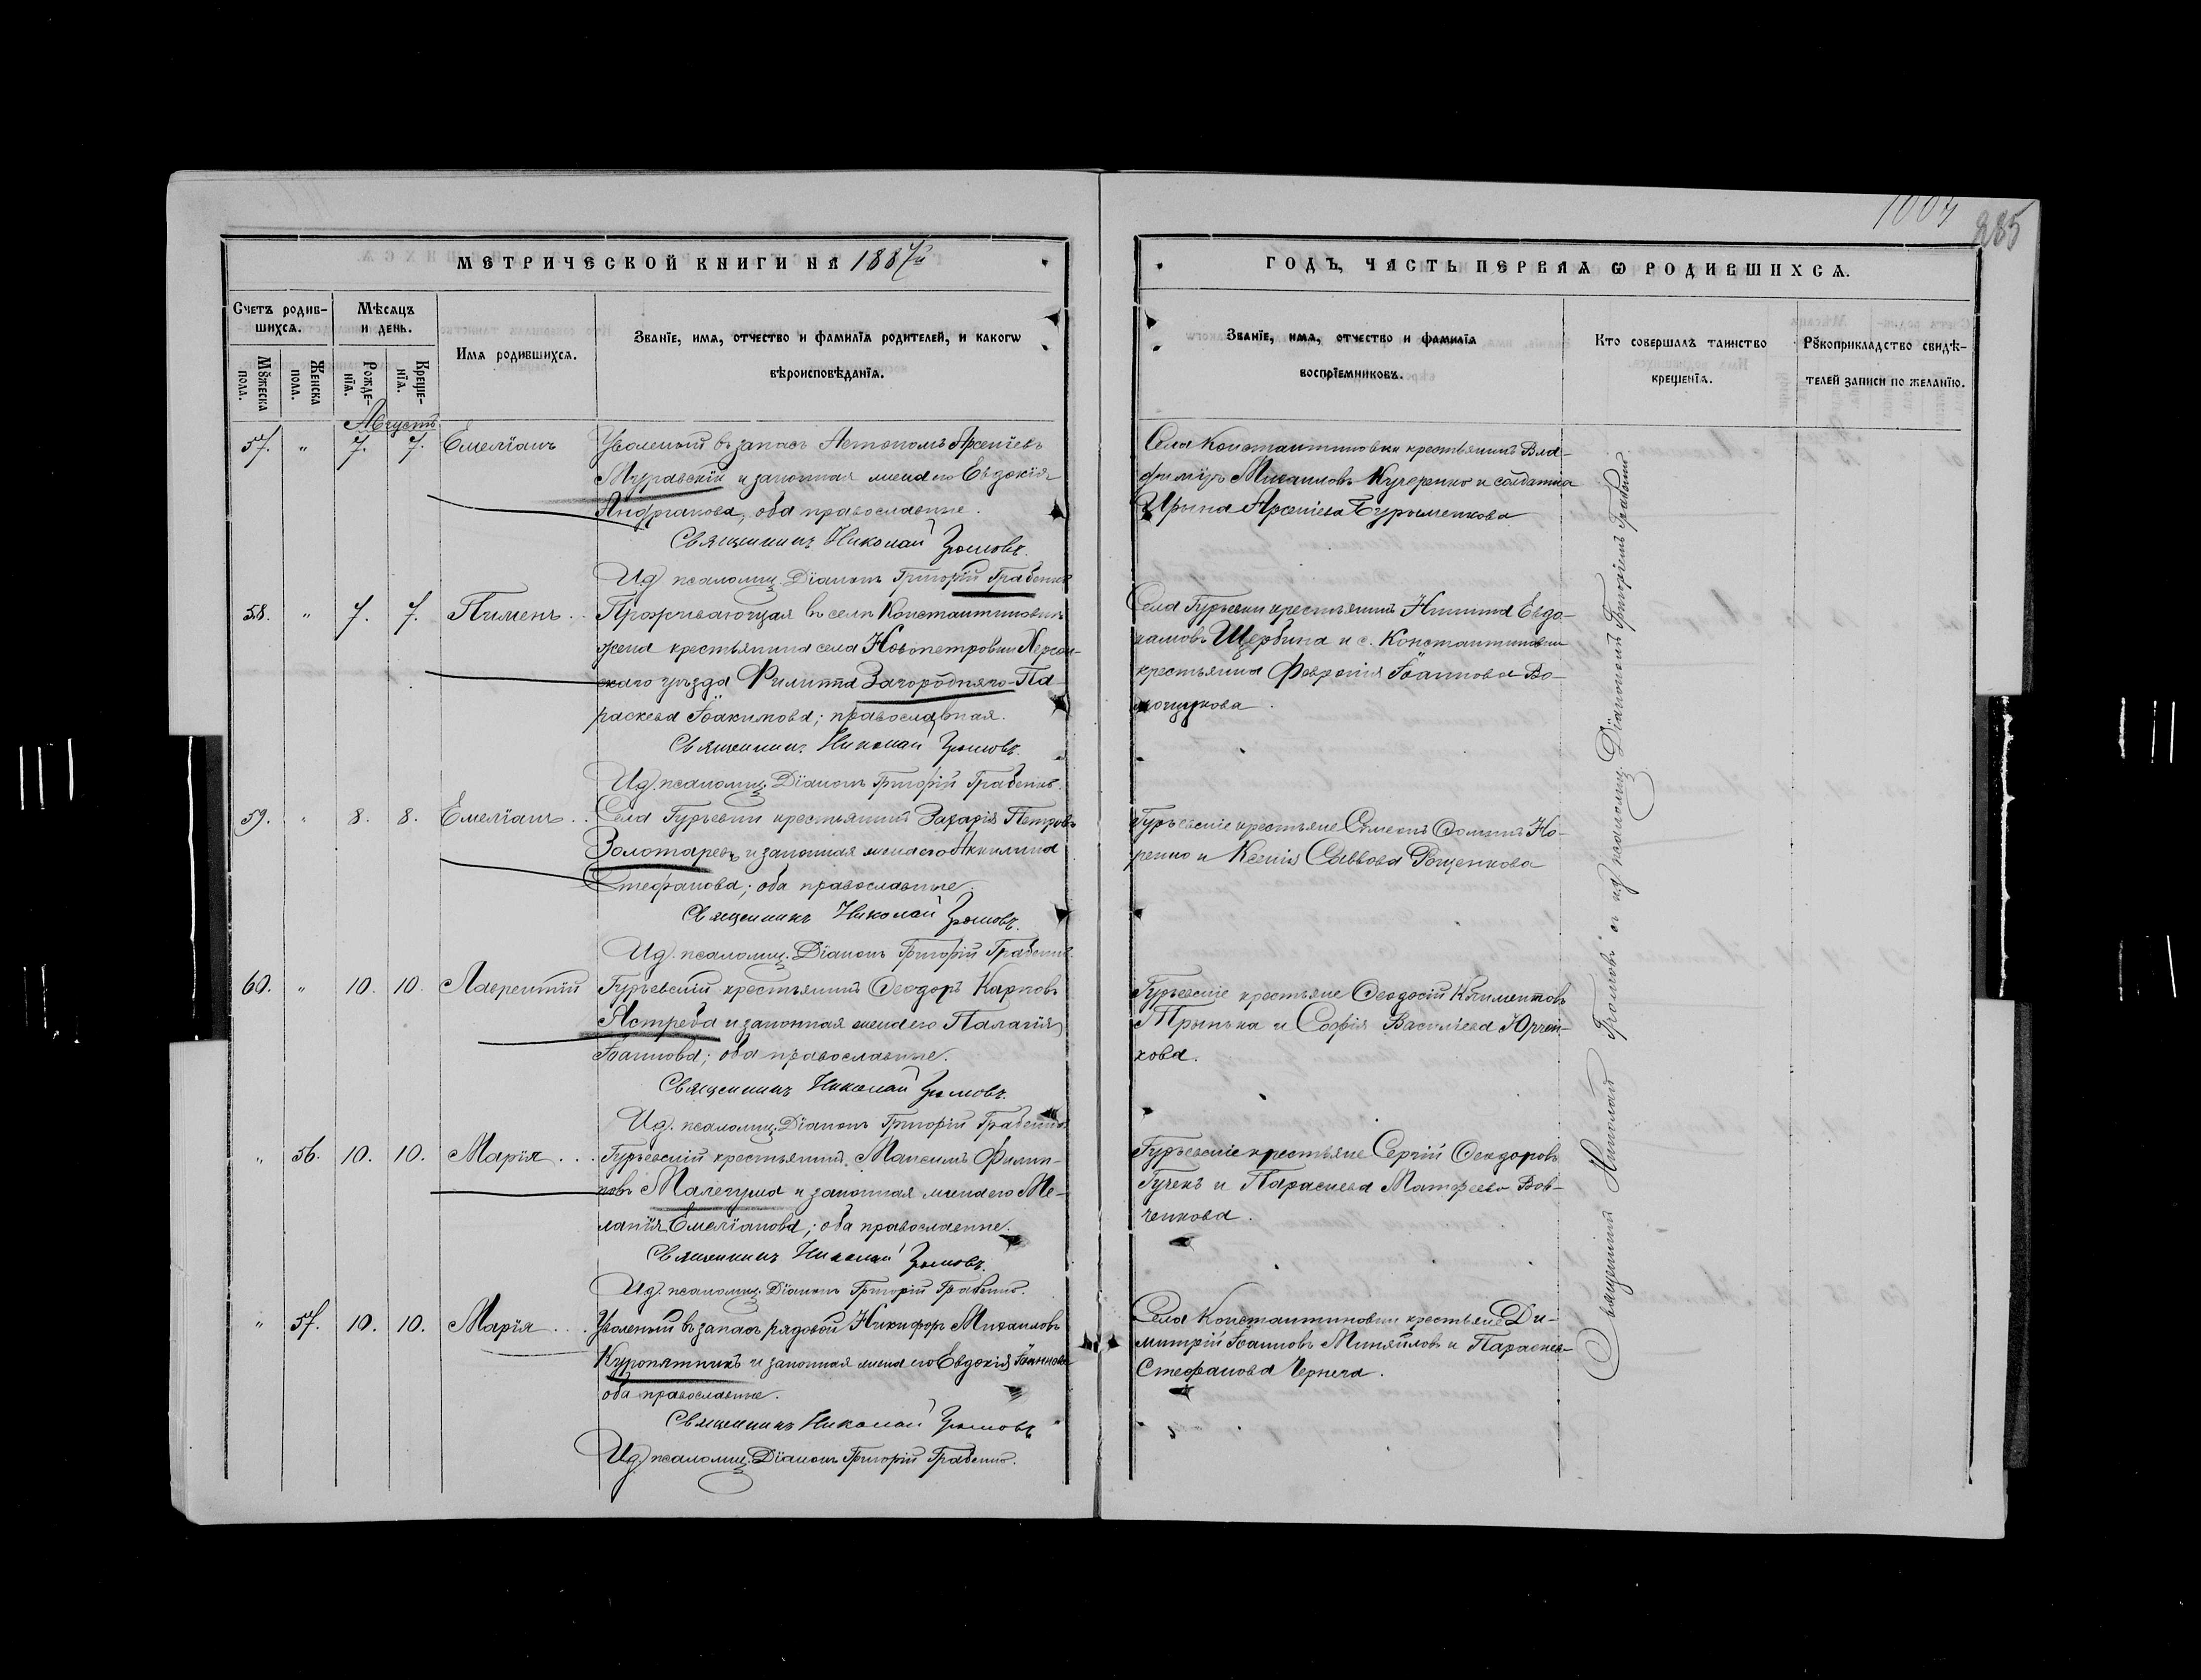 1004
285
МЕТРИЧЕСКОЙ КНИГИ НА 1887й
ГОДЪ, ЧАСТЬ ПЕРВАЯ Ѡ РОДИВШИХСѦ.
Счетъ родив-
шихсѧ.
Мꙋжеска
пола.
Женска
пола.
Мѣсѧцъ
и день.
Рожде-
нїѧ.
Креще-
нїѧ.
Имѧ родившихсѧ.
Званїе, имѧ, отчество и фамилїѧ родителей, и какогѡ
вѣроисповѣданїѧ.
Званїе, имѧ, отчество и фамилїѧ
воспрїемниковъ.
Кто совершалъ таинство
крещенїѧ.
Рꙋкоприкладство свидѣ-
телей записи по желанїю.
Августъ
57. " 7. 7. Емелїанъ
Уволеный въ запасъ Автономъ Арсенїевъ
Муравскїй и законная жена его Евдокїя
Андрїанова, оба православные.
Священникъ Николай Громовъ.
И.д. псаломщ. Дїаконъ Григорїй Грабенко
Села Константиновки крестьянинъ Вла-
димїръ Михаиловъ Кучеренко и солдатка
Ирина Арсенїева Бурыменкова
58. " 7. 7. Пименъ . .
Проживающая въ селѣ Константиновкѣ
жена крестьянина села Новопетровки Херсон-
скаго уѣзда Филиппа Загородняго-Па-
раскева Іоакимова; православная.
Священникъ Николай Громовъ.
И.д. псаломщ. Дїаконъ Григорїй Грабенко.
Села Гурьевки крестьянинъ Никита Евдо-
кимовъ Щербина и с. Константиновки
крестьянка Февронїя Іоаннова Во-
лощукова.
59. " 8. 8. Емелїанъ . .
Села Гурьевки крестьянинъ Захарїя Петровъ
Золотаревъ и законная жена его Акилина
Стефанова; оба православные.
Священникъ Николай Громовъ.
И.д. псаломщ. Дїаконъ Григорїй Грабенко.
Гурьевскїе крестьяне Симеонъ Ѳоминъ Но-
ренко и Ксенїя Саввова
60. " 10. 10. Лаврентїй
Гурьевскїй крестьянинъ Ѳеодоръ Карповъ
Ястреба и законная жена его Палагїя
Іоаннова; оба православные.
Священникъ Николай Громовъ.
И.д. псаломщ. Дїаконъ Григорїй Грабенко
Гурьевскїе крестьяне Ѳеодосїй Климентовъ
Трынька и Софїя Васильева Юрчен-
кова.
" 56. 10. 10. Марїя . . .
Гурьевскїй крестьянинъ Максимъ Филип-
повъ и законная жена его Ме-
ланїя Емелїанова; оба православные.
Священникъ Николай Громовъ.
И.д. псаломщ. Дїаконъ Григорїй Грабенко.
Гурьевскїе крестьяне Сергїй Ѳеодоровъ
Гученъ и Параскева Матфеева Вов-
ченкова.
" 57. 10. 10. Марїя . . .
Уволеный въ запасъ рядовой Никифоръ Михаиловъ
Куропятникъ и законная жена его Евдокїя Іоаннова
оба православные.
Священникъ Николай Громовъ
И.д. псаломщ. Дїаконъ Григорїй Грабенко.
Села Константиновки крестьяне Ди-
митрїй Іоанновъ Миняйловъ и Параскева
Стефанова
Священникъ Николай Громовъ съ и.д. псаломщ. Дїакономъ Григорїемъ Грабенко.